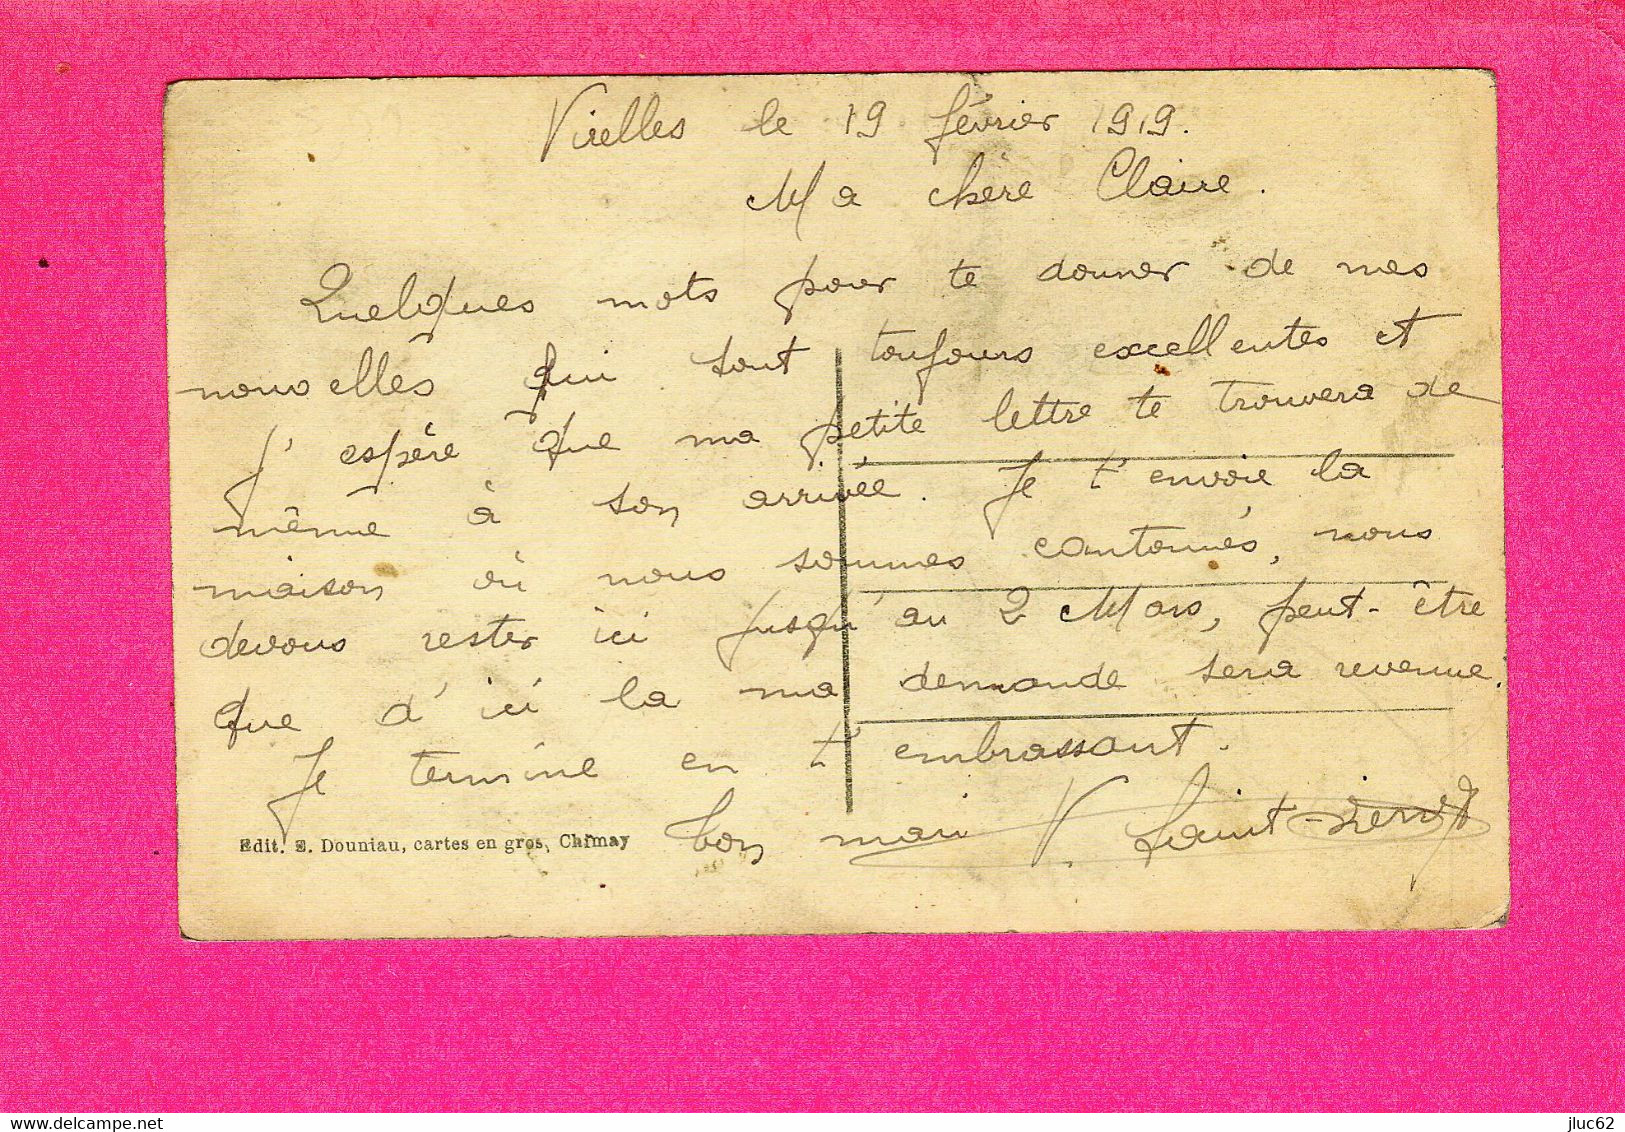 Virelles le 19 février 1919.
Ma chère Claire.
Quelques mots pour te donner de mes
nouvelles qui sont toujours excellentes et
j'espère que ma petite lettre te trouvera de
même à son arrivée. Je t'envoie la
maison où nous sommes cantonnés, nous
devons rester ici jusqu'au 2 Mars, peut-être
que d'ici la ma demande sera revenue.
Je termine en t'embrassant.
Ton mari V. Saint-
Edit. E. Douniau, cartes en gros, Chimay
jluc62